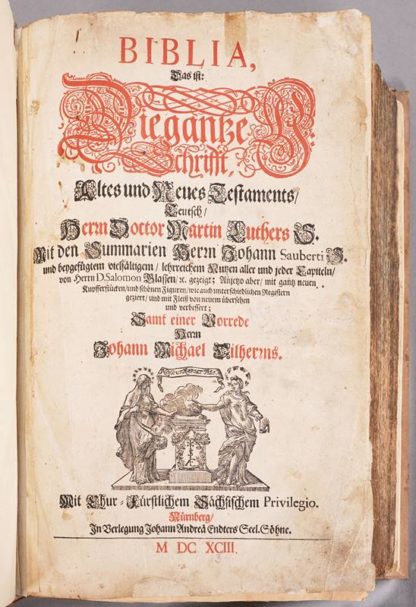 BIBLIA,
Das ist:
Die gantze H.
Schrifft,
Altes und Neues Testaments/
Teutsch/
Herrn Doctor Martin Luthers S.
Mit den Summarien Herrn Johann Sauberti S.
und beygefügtem vielfältigem/ lehrreichem Nutzen aller und jeder Capiteln/
von Herrn D. Salomon Glassen/ ꝛc. gezeigt; Anjetzo aber/ mit gantz neuen
Kupfferstücken/ und schönen Figuren/ wie auch unterschiedlichen Registern
geziert/ und mit Fleiß von neuem übersehen
und verbessert;
Samt einer Vorrede
Herrn
Johann Michael Dilherrns.
Mit Chur-Fürstlichem Sächsischem Privilegio.
Nürnberg/
In Verlegung Johann Andreä Endters Seel. Söhne.
M DC XCIII.